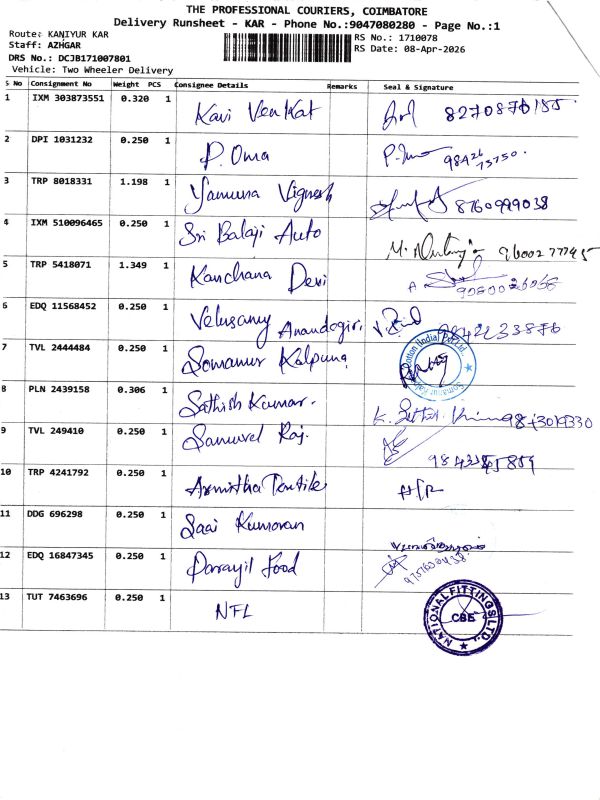 THE PROFESSIONAL COURIERS, COIMBATORE
Delivery Runsheet - KAR - Phone No.:9047080280 - Page No.:1
Route: KANIYUR KAR
RS No.: 1710078
Staff: AZHGAR
RS Date: 08-Apr-2026
DRS No.: DCJB171007801
Vehicle: Two Wheeler Delivery
S No Consignment No Weight PCS Consignee Details Remarks Seal & Signature
1 IXM 303873551 0.320 1 Kavi Venkat
2 DPI 1031232 0.250 1 P. Oma
3 TRP 8018331 1.198 1 Yamuna Vignesh 8760999038
4 IXM 510096465 0.250 1 Sri Balaji Auto
5 TRP 5418071 1.349 1 Kanchana Devi
6 EDQ 11568452 0.250 1 Velusamy Anandagiri
7 TVL 2444484 0.250 1 Somanur Kalpana
8 PLN 2439158 0.306 1 Sathish Kumar.
9 TVL 249410 0.250 1 Samuvel Raj.
10 TRP 4241792 0.250 1
11 DDG 696298 0.250 1 Saai Kumaran
12 EDQ 16847345 0.250 1 Parayil Food
13 TUT 7463696 0.250 1 NFL
NATIONAL FITTINGS LTD.
CBE